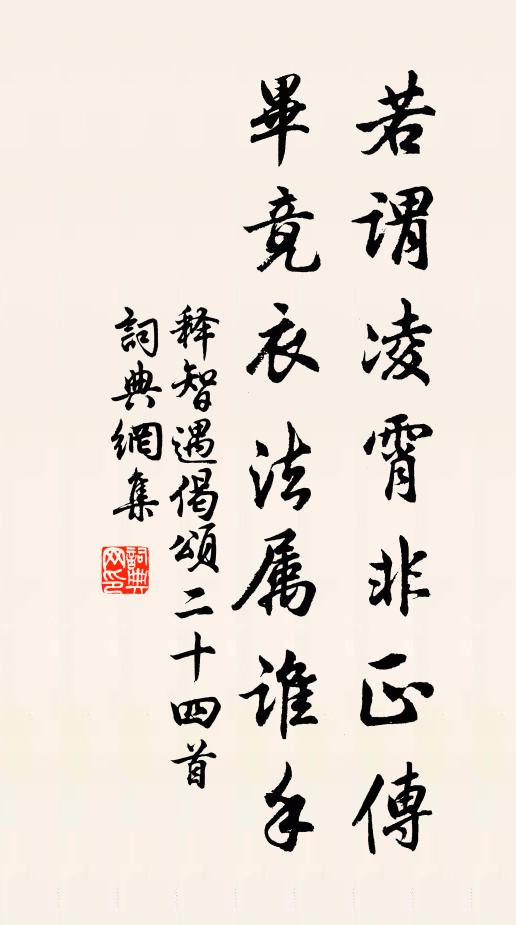 若谓凌霄非正傳
畢竟衣法属誰手
释智遇偈頌二十四首
詞典網集
詞典网印